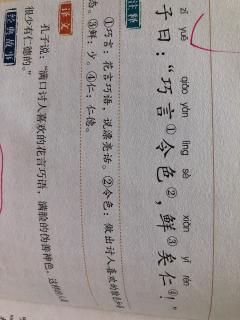 zǐ yuē qiǎo yán lìng sè xiǎn yǐ rén
子曰：“巧言①令色②，鲜③矣仁④！”
注释
①巧言：花言巧语，说漂亮话。②令色：做出讨人喜欢的
态。③鲜：少。④仁：仁德。
译文
孔子说：“满口讨人喜欢的花言巧语，满脸的伪善神色，这样的人
很少有仁德的。”
经典故事